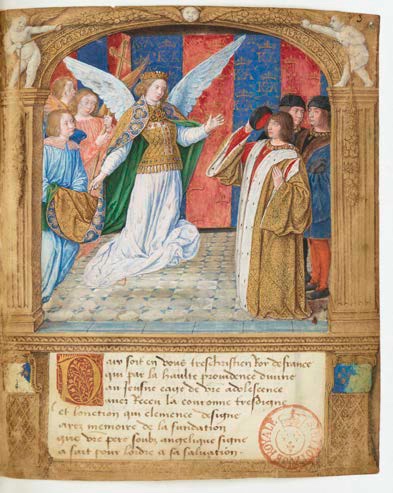 Paix soit en vous treschristien Roy de france
qui par la haulte providence divine
au jeusne eage de vre adolescence
avez Receu la couronne tresdigne
et lonction qui clemence designe
ayez memoire de la fundation
que vre pere soubz angelique signe
a fait pour lordre a sa salvation